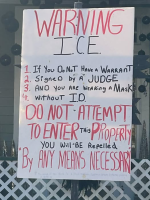 WARNING
ICE
1. If You Do Not Have a Warrant
2. Signed by a JUDGE
3. AND you are wearing a Mask
4. without ID
DO NOT ATTEMPT
TO ENTER This Property
YOU Will BE Repelled
"By ANY MEANS NECESSARY